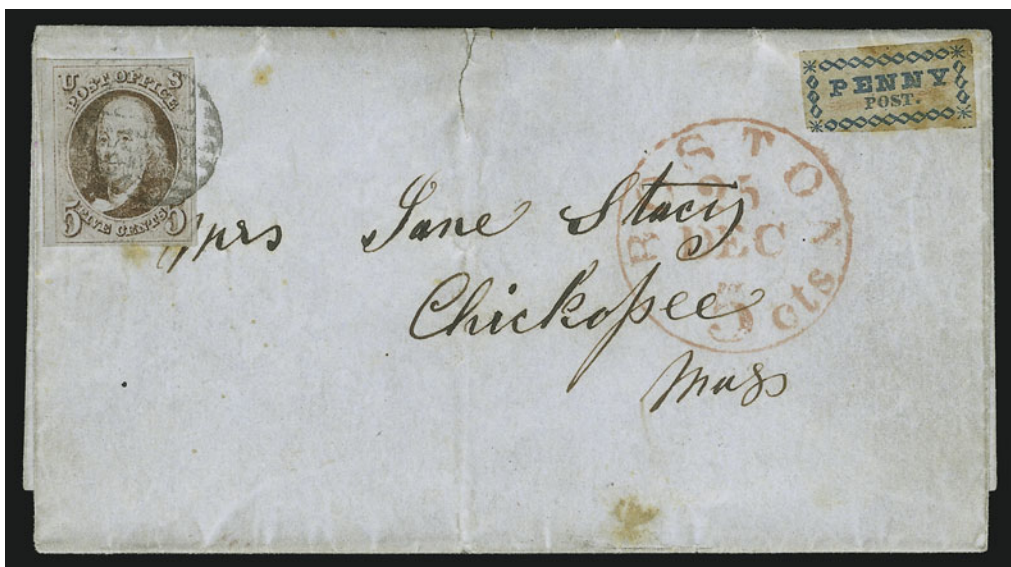 U S
POST OFFICE
FIVE CENTS
5 5
PENNY
POST.
BOSTON
25
DEC
5 cts
Mrs Jane Stacy
Chickopee
Mass